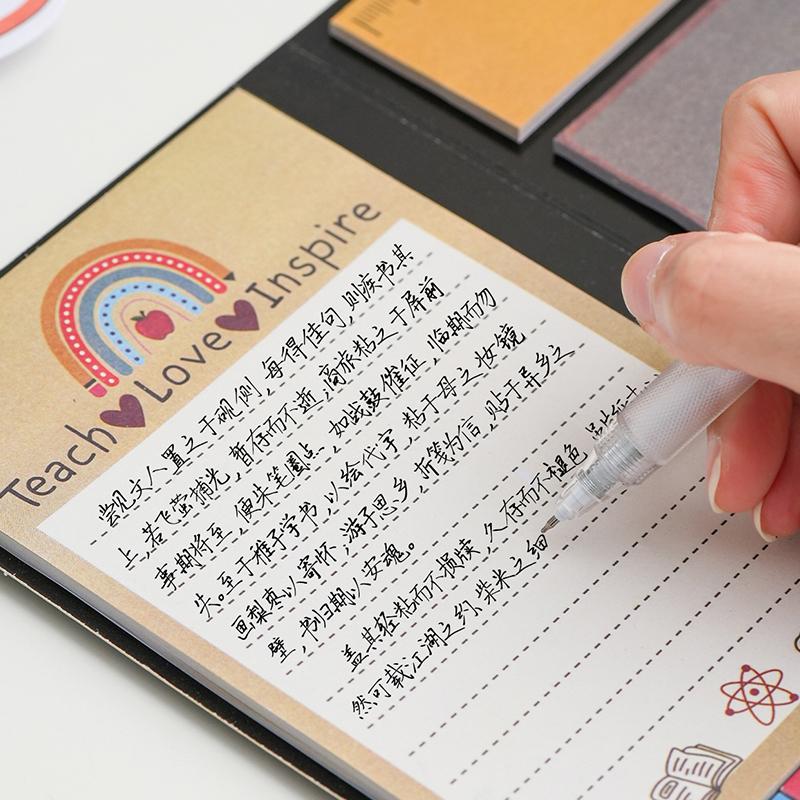 Teach Love Inspire
尝观文人置之于砚侧,每得佳句,则疾书其
上,若飞萤捕光,暂存而不逝,商旅粘之于屏前
事期将至,便朱笔圈点,如战鼓催征,临期而勿
失。至于稚子学书,以绘代字,粘于母之妆镜
画梨枣以寄怀,游子思乡,折笺为信,贴于异乡之
壁,书归期以安魂。
盖其轻粘而不损牍,久存而不褪色
然可载江湖之约、柴米之细